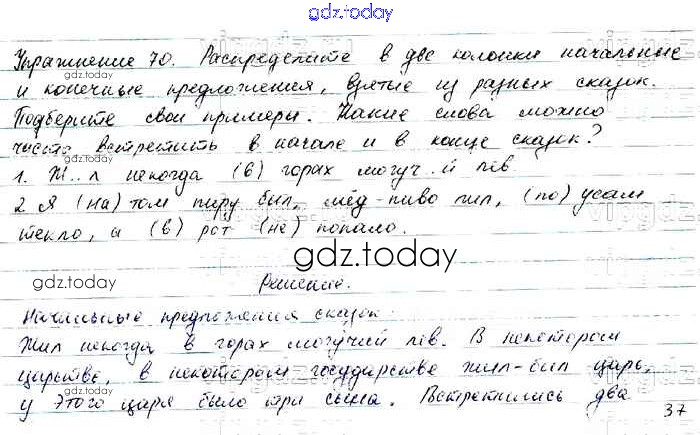 gdz.today
Упражнение 70. Распределите в две колонки начальные
gdz.today
и конечные предложения, взятые из разных сказок.
Подберите свои примеры. Какие слова можно
часто встретить в начале и в конце сказок?
gdz.today
1. Ж..л некогда (в) горах могуч..й лев.
2. Я (на) том пиру был, мёд-пиво пил, (по) усам
текло, а (в) рот (не) попало.
gdz.today
gdz.today
Решение.
Начальные предложения сказок:
Жил некогда в горах могучий лев. В некотором
царстве, в некотором государстве жил-был царь,
gdz.today
у этого царя было три сына. Встретились два
37